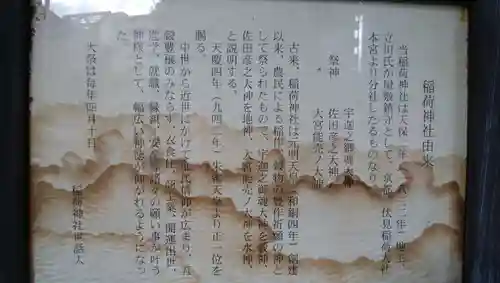 稲荷神社由来
当稲荷神社は天保 年
立川氏が屋敷鎮守として、京都 伏見稲荷大社
本宮より分社したるものなり。
祭神
宇迦之御魂大神
佐田彦之大神
大宮能売ノ大神
古来、稲荷神社は元明天皇 和銅四年)創建
以来、農民による稲作 穀物の豊作祈願の神と
して祭られたもので、宇迦之御魂大神を 神、
佐田彦之大神を地神、大宮能売ノ大神を水神、
と説明する。
天慶四年(九四二年)朱雀天皇より正一位を
賜る。
中世から近世にかけて 信仰が広まり、五
穀豊穣のみならず、衣食住、商工業、開運出世、
就職、縁組、安産、諸々の願い事が叶う
神様として、幅広い信仰を仰がれるようになっ
た。
大祭は毎年四月十日
稲荷神社世話人